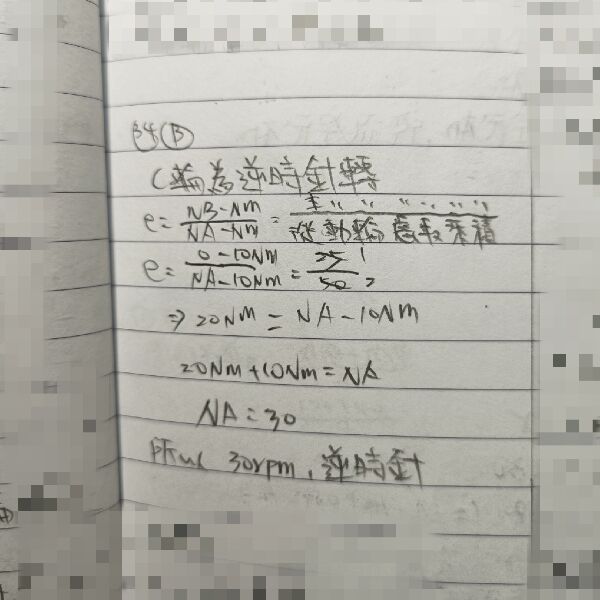 34 B
C輪為逆時針轉
e = NB-Nm / NA-Nm = 主 〃 〃 〃 〃 〃 〃 / 從動輪齒數乘積
e = 0-10Nm / NA-10Nm = 25 1 / 50 2
⇒ 20Nm = NA-10Nm
20Nm+10Nm = NA
NA = 30
所以 30rpm,逆時針